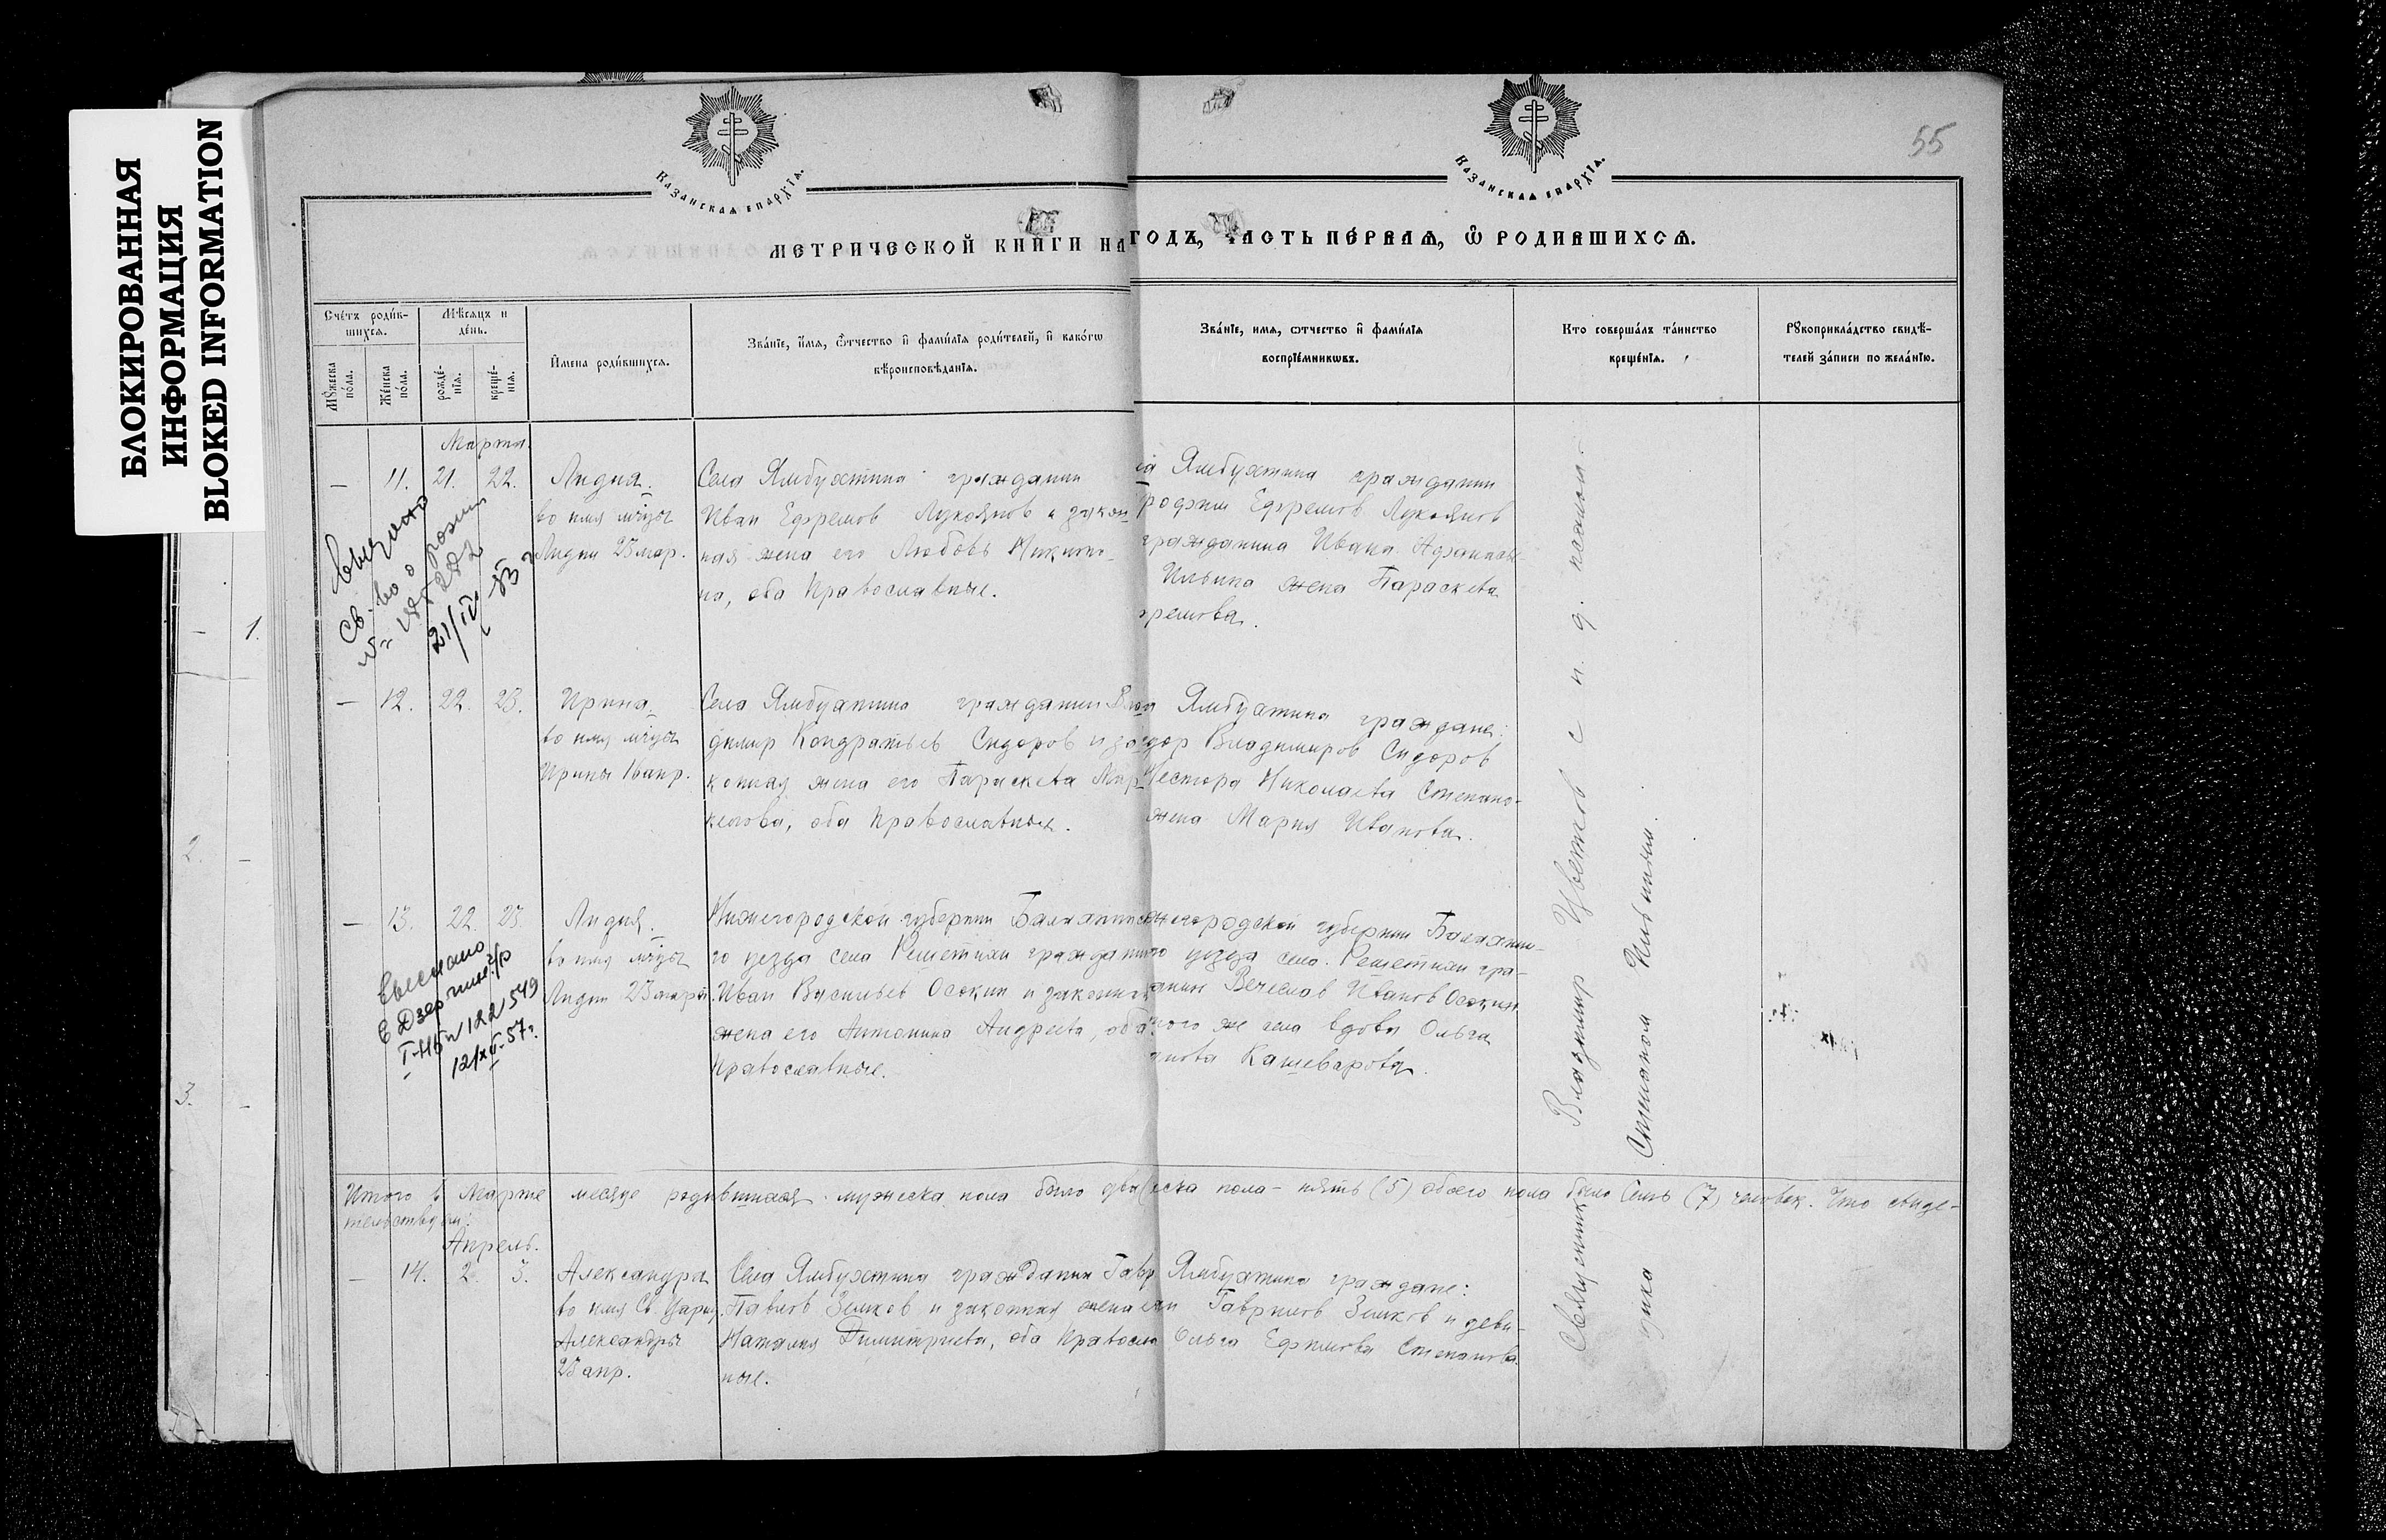 БЛОКИРОВАННАЯ
ИНФОРМАЦИЯ
BLOKED INFORMATION
55
КАЗАНСКАЯ ЕПАРХІЯ.
КАЗАНСКАЯ ЕПАРХІЯ.
МЕТРИЧЕСКОЙ КНИГИ НА ГОДЪ, ЧАСТЬ ПЕРВАЯ, Ѡ РОДИВШИХСЯ.
Счетъ родив-
шихся.
Мѣсяцъ и
день.
Мꙋжеска
пола.
Женска
пола.
рожде-
нїя.
креще-
нїя.
Имена родившихся.
Званїе, имя, ѿчество и фамилїя родителей, и какогѡ
вѣроисповѣданїя.
Званїе, имя, ѿчество и фамилїя
воспрїемникѡвъ.
Кто совершалъ таинство
крещенїя.
Рꙋкоприкладство свидѣ-
телей записи по желанїю.
Марта.
— 11. 21. 22.
Лидия.
во имя мчцы
Лидии 23 мар.
Села Ямбухтина гражданин
Иван Ефремов Лукоянов и закон
ная жена его Любовь Никити-
на, оба Православные.
ла Ямбухтина гражданин
рофим Ефремов Лукоянов
гражданина Ивана Афанась-
Ильина жена Параскева
фремова.
Св-во о рожд
21/IV 53 г
— 12. 22. 23.
Ирина.
во имя мчцы
Ирины 16 апр.
Села Ямбухтина гражданин Вла
димир Кондратьев Сидоров и за
конная жена его Параскева Мар
келова, оба Православные.
Ямбухтина граждане:
дор Владимиров Сидоров
Нестора Николаева Степано-
жена Мария Иванова.
— 13. 22. 23.
Лидия.
во имя мчцы
Лидии 23 мар
Нижегородской губернии Балахнинск
го уезда села Решетихи гражданин
Иван Васильев Осокин и законная
жена его Антонина Андреева, оба
Православные.
жегородской губернии Балахнин-
го уезда села Решетихи гра-
данин Вечеслав Иванов Осокин
того же села вдова Ольга
анова Кашеварова.
Выслано
в Дзержинск
122549
57 г.
Итого в Марте месяце родившихся мужеска пола было два ска пола - пять (5) обоего пола было Семь (7) человек. Что свиде-
тельствуем:
Апрель.
— 14. 2. 3.
Александра
во имя Св. Цариц.
Александры
23 апр.
Села Ямбухтина гражданин Гавр
Павлов Зимков и законная жена его
Наталия Димитриева, оба Правосла
ные.
Ямбухтина граждане:
Гаврилов Зимков и деви-
Ольга Ефимова Степанова
Священник Владимир Цветков с и. д. псалом-
щика Степаном Ильиным.
1.
2.
3.